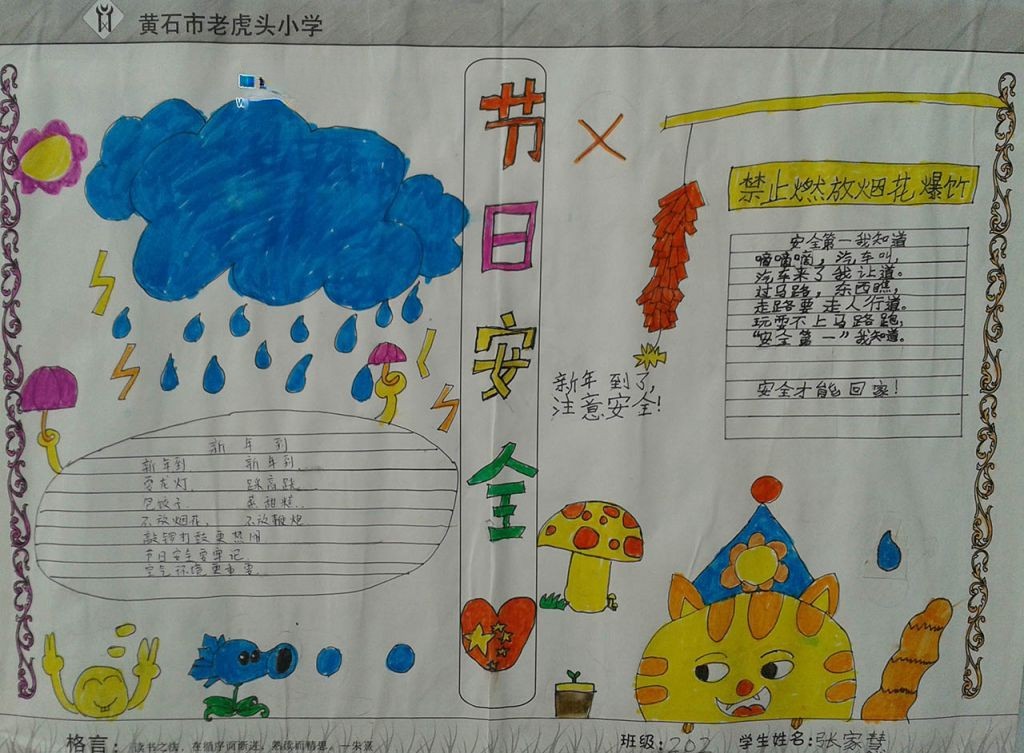 黄石市老虎头小学
节日安全
禁止燃放烟花爆竹
安全第一我知道
嘀嘀嘀，汽车叫，
汽车来了我让道。
过马路，东西瞧，
走路要走人行道。
玩耍不上马路跑，
“安全第一”我知道。
安全才能回家！
新年到了，
注意安全！
新年到
新年到 新年到
耍龙灯 踩高跷
包饺子 蒸甜糕
不放烟花， 不放鞭炮
敲锣打鼓更热闹
节日安全要牢记
空气环境更重要
格言：读书之法，在循序而渐进，熟读而精思。—朱熹
班级：202 学生姓名：张家慧